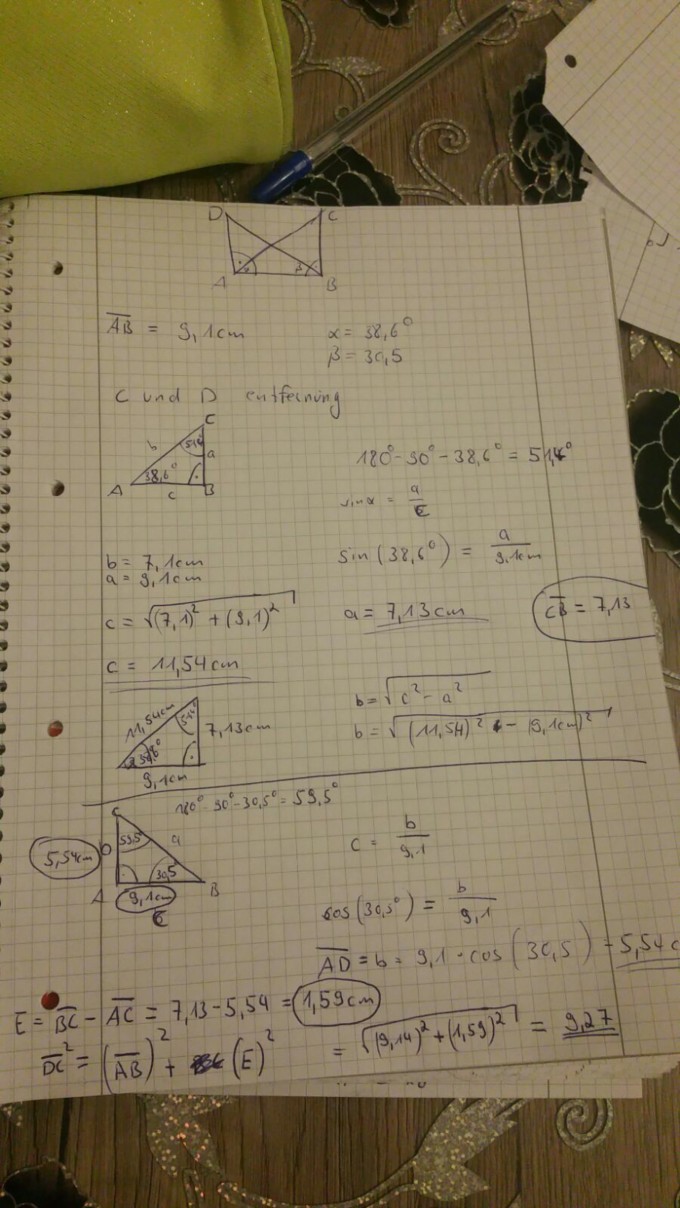 D C
A B
α β
AB = 9,1cm
α = 38,6°
β = 30,5
C und D entfernung
C
b 51,4° a
38,6°
A c B
180° - 90° - 38,6° = 51,4°
sin α = a / c
b = 7,1cm
a = 9,1cm
sin (38,6°) = a / 9,1cm
c = √(7,1)² + (9,1)²
a = 7,13cm
CB = 7,13
c = 11,54cm
11,54cm 7,13cm
9,1cm
b = √c² - a²
b = √(11,54)² - (9,1cm)²
180° - 90° - 30,5° = 59,5°
59,5 a
5,54cm
30,5
A 9,1cm B
c
c = b / 9,1
cos (30,5°) = b / 9,1
AD = b = 9,1 · cos (30,5) = 5,54 c
E = BC - AC = 7,13 - 5,54 = 1,59cm
DC² = (AB)² + (E)² = √(9,14)² + (1,59)² = 9,27